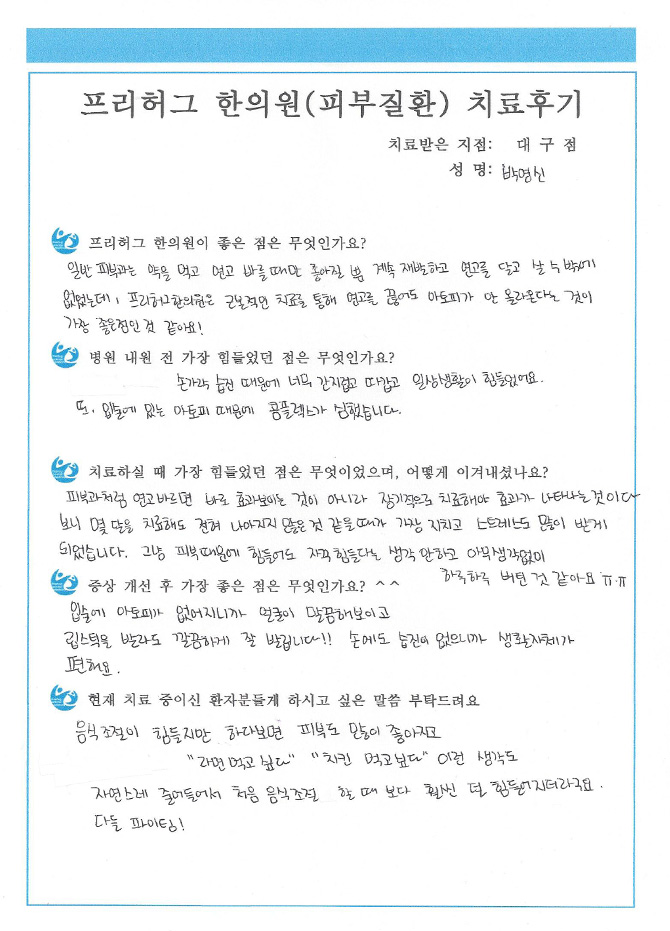 프리허그 한의원(피부질환) 치료후기
치료받은 지점: 대 구 점
성 명: 박명신
프리허그 한의원이 좋은 점은 무엇인가요?
일반 피부과는 약을 먹고 연고 바를때만 좋아질 뿐 계속 재발하고 연고를 달고 살 수 밖에
없었는데, 프리허그한의원은 근본적인 치료를 통해 연고를 끊어도 아토피가 안 올라온다는 것이
가장 좋은점인것 같아요!
병원 내원 전 가장 힘들었던 점은 무엇인가요?
손가락 습진 때문에 너무 간지럽고 따갑고 일상생활이 힘들었어요.
또, 입술에 있는 아토피 때문에 콤플렉스가 심했습니다.
치료하실 때 가장 힘들었던 점은 무엇이었으며, 어떻게 이겨내셨나요?
피부과처럼 연고바르면 바로 효과보이는 것이 아니라 장기적으로 치료해야 효과가 나타나는것이다
보니 몇 달을 치료해도 전혀 나아지지 않은것 같을때가 가장 지치고 스트레스도 많이 받게
되었습니다. 그냥 피부때문에 힘들어도 자꾸 힘들다는 생각 안하고 아무생각없이
하루하루 버틴 것 같아요 ㅠ.ㅠ
증상 개선 후 가장 좋은 점은 무엇인가요? ^ ^
입술에 아토피가 없어지니까 얼굴이 말끔해보이고
립스틱을 발라도 깔끔하게 잘 발립니다!! 손에도 습진이 없으니까 생활자체가
편해요.
현재 치료 중이신 환자분들게 하시고 싶은 말씀 부탁드려요
음식조절이 힘들지만 하다보면 피부도 많이 좋아지고
"라면먹고싶다" "치킨 먹고싶다" 이런 생각도
자연스레 줄어들어서 처음 음식조절 할 때 보다 훨씬 덜 힘들어지더라구요.
다들 파이팅!